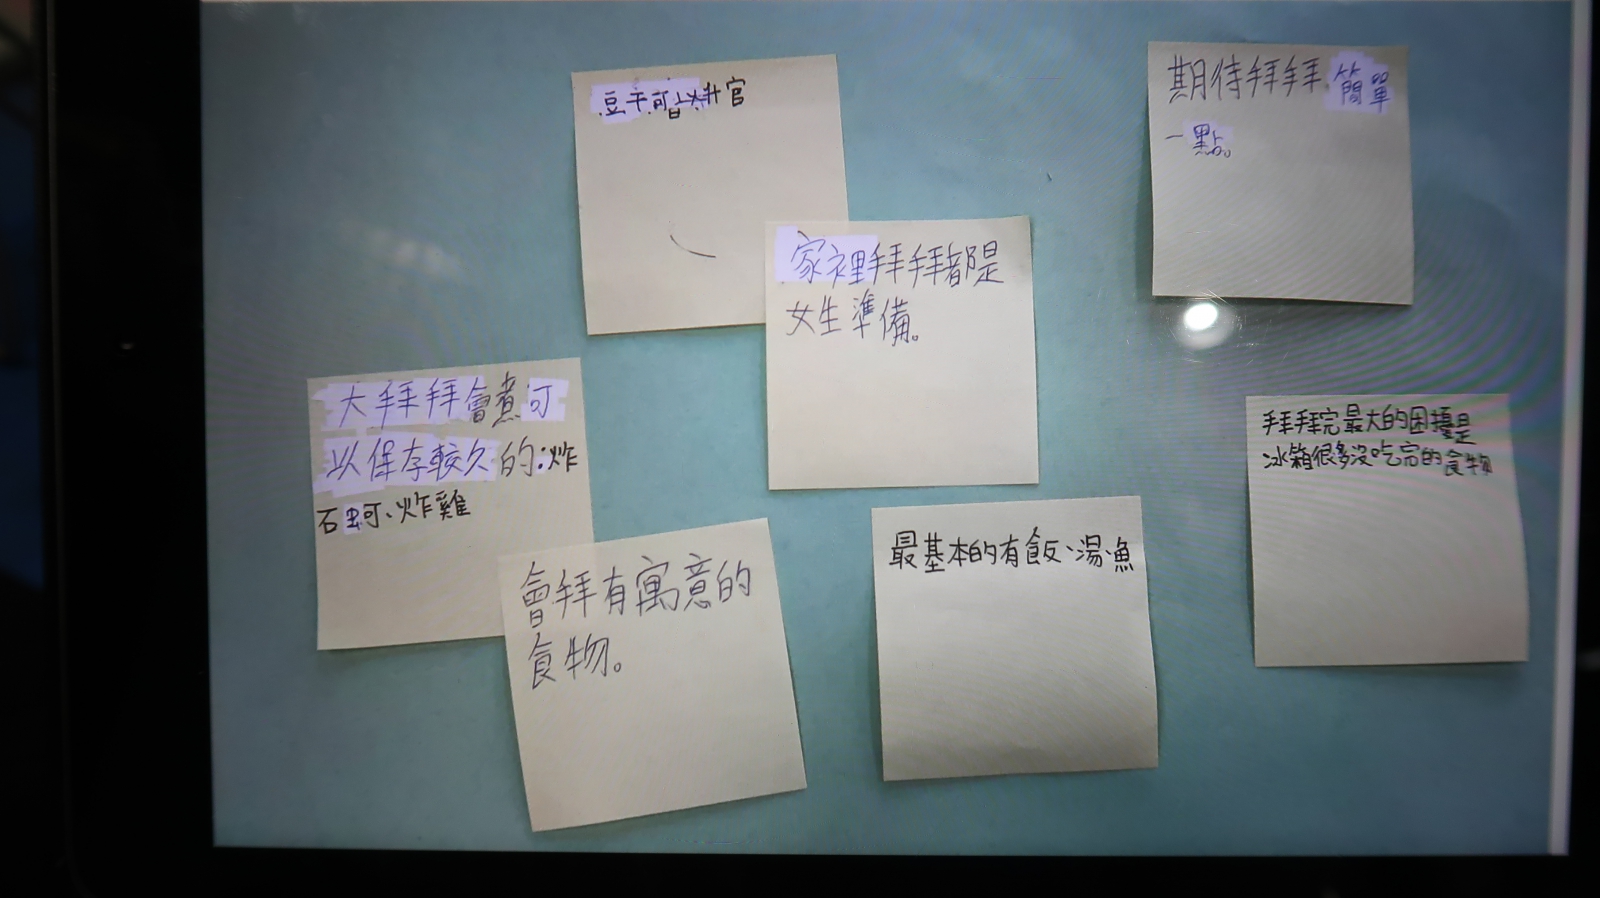 豆干可以升官
期待拜拜簡單
一點。
家裡拜拜都是
女生準備。
大拜拜會煮可
以保存較久的:炸
石蚵、炸雞
拜拜完最大的困擾是
冰箱很多沒吃完的食物
會拜有寓意的
食物。
最基本的有飯、湯、魚